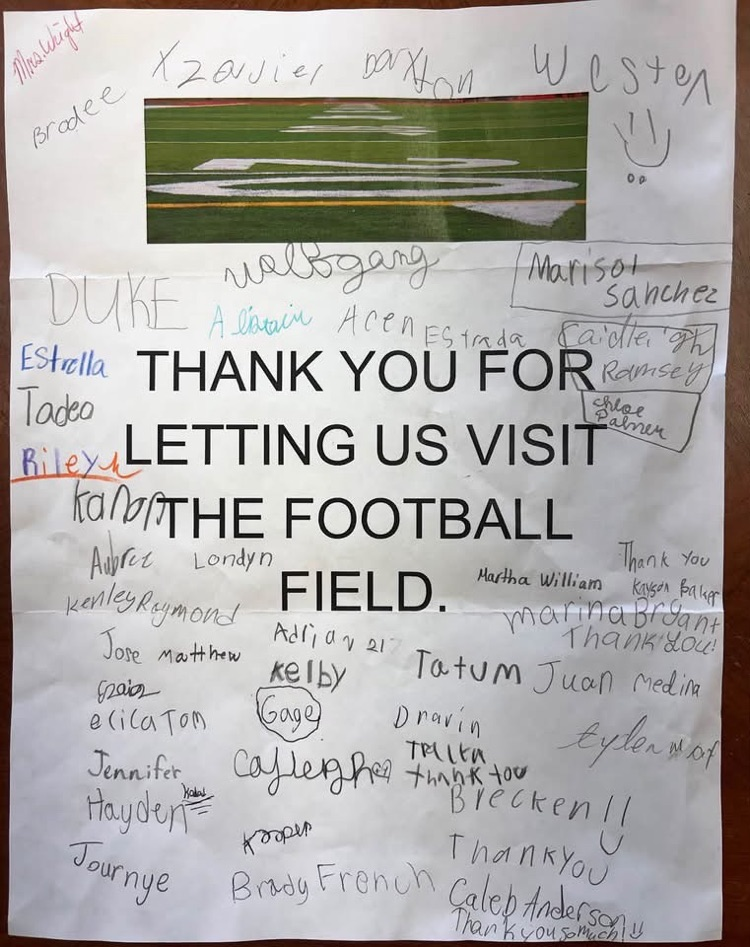 Mrs. Wright
Xzavier
Daxton
Westen
Brodee
20
Wolfgang
DUKE
Acen
EStrada
Marisol
Sanchez
Caidleigh
Ramsey
EStrella
Tadeo
Riley
Chloe
THANK YOU FOR
LETTING US VISIT
THE FOOTBALL
FIELD.
Kanon
Aubree
Londyn
Kenley Raymond
Martha William
Thank You
Kayson Baker
Marina Bryant
Thank You!
Jose
Matthew
Adrian 21
Kelby
Tatum
Juan Medina
erica Tom
Gage
Dravin
Jennifer
Thank You
Hayden
Brecken!!
Kooper
Thank you
Journye
Brady French
Caleb Anderson
Thank you so much!!